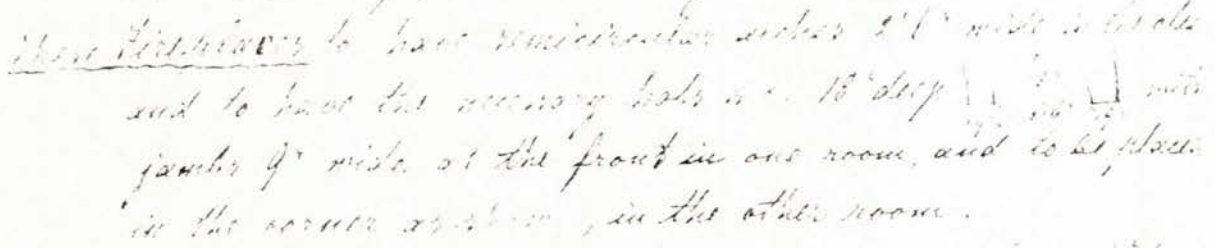 These Fireplaces to have semicircular arches 2' 6" wide in
and to have the necessary hobs &c. 18" deep with
jambs 9" wide at the front in one room, and to be placed
in the corner as shown, in the other room.